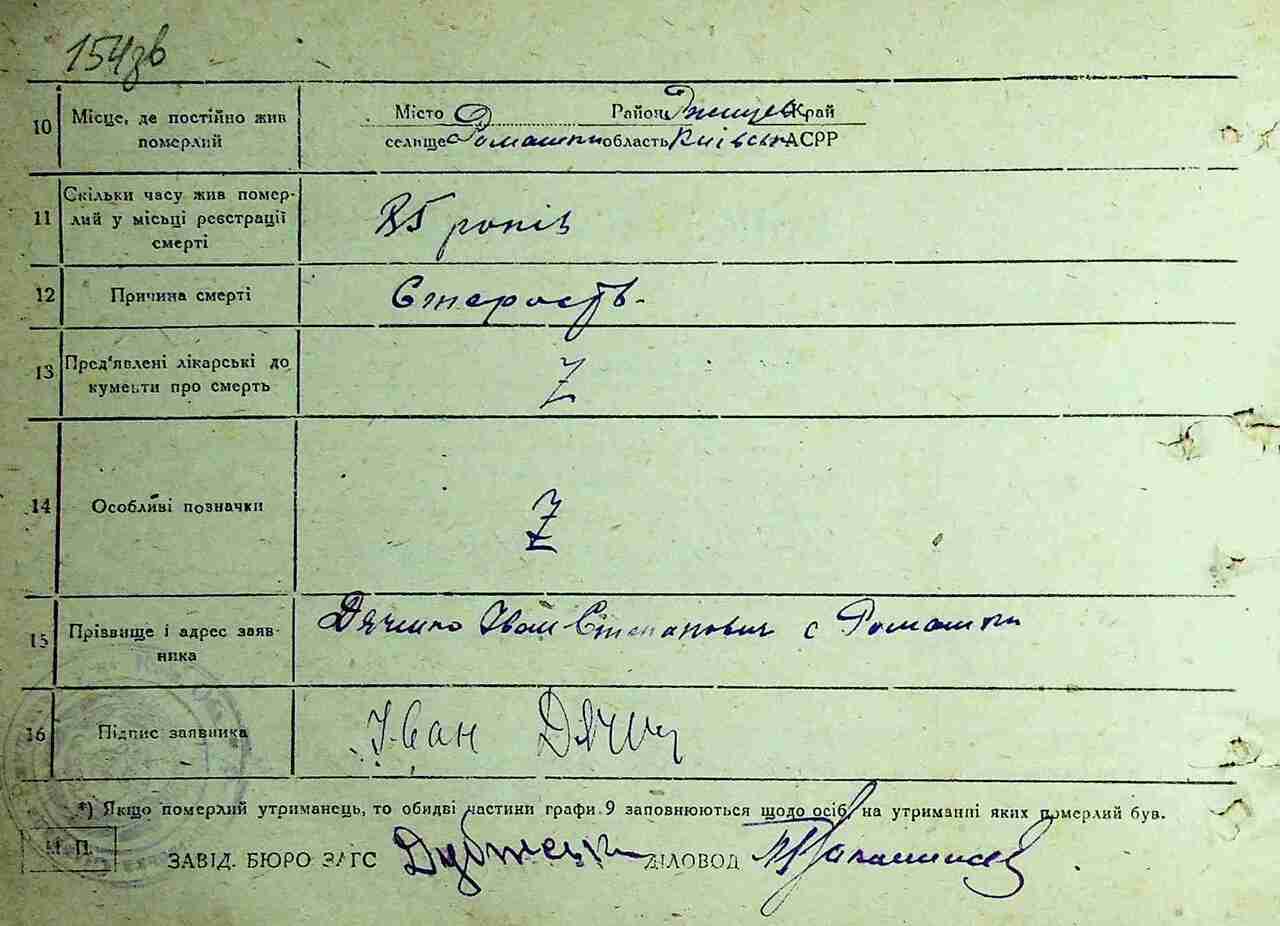 154зв
10 Місце, де постійно жив Місто Район Ржищев Край
померлий селище Ромашки область Київськ АСРР
11 Скільки часу жив помер-
лий у місьці реєстрації
смерті
85 років
12 Причина смерті Старость.
13 Пред'явлені лікарські до
кументи про смерть
Z
14 Особливі позначки Z
15 Прізвище і адрес заяв-
ника
Дячико Іван Степанович с Ромашки
16 Підпис заявника Іван Дячи
*) Якщо померлий утриманець, то обидві частини графи 9 заповнюються щодо осіб, на утриманні яких померлий був.
М. П.
ЗАВІД. БЮРО ЗАГС ДІЛОВОД